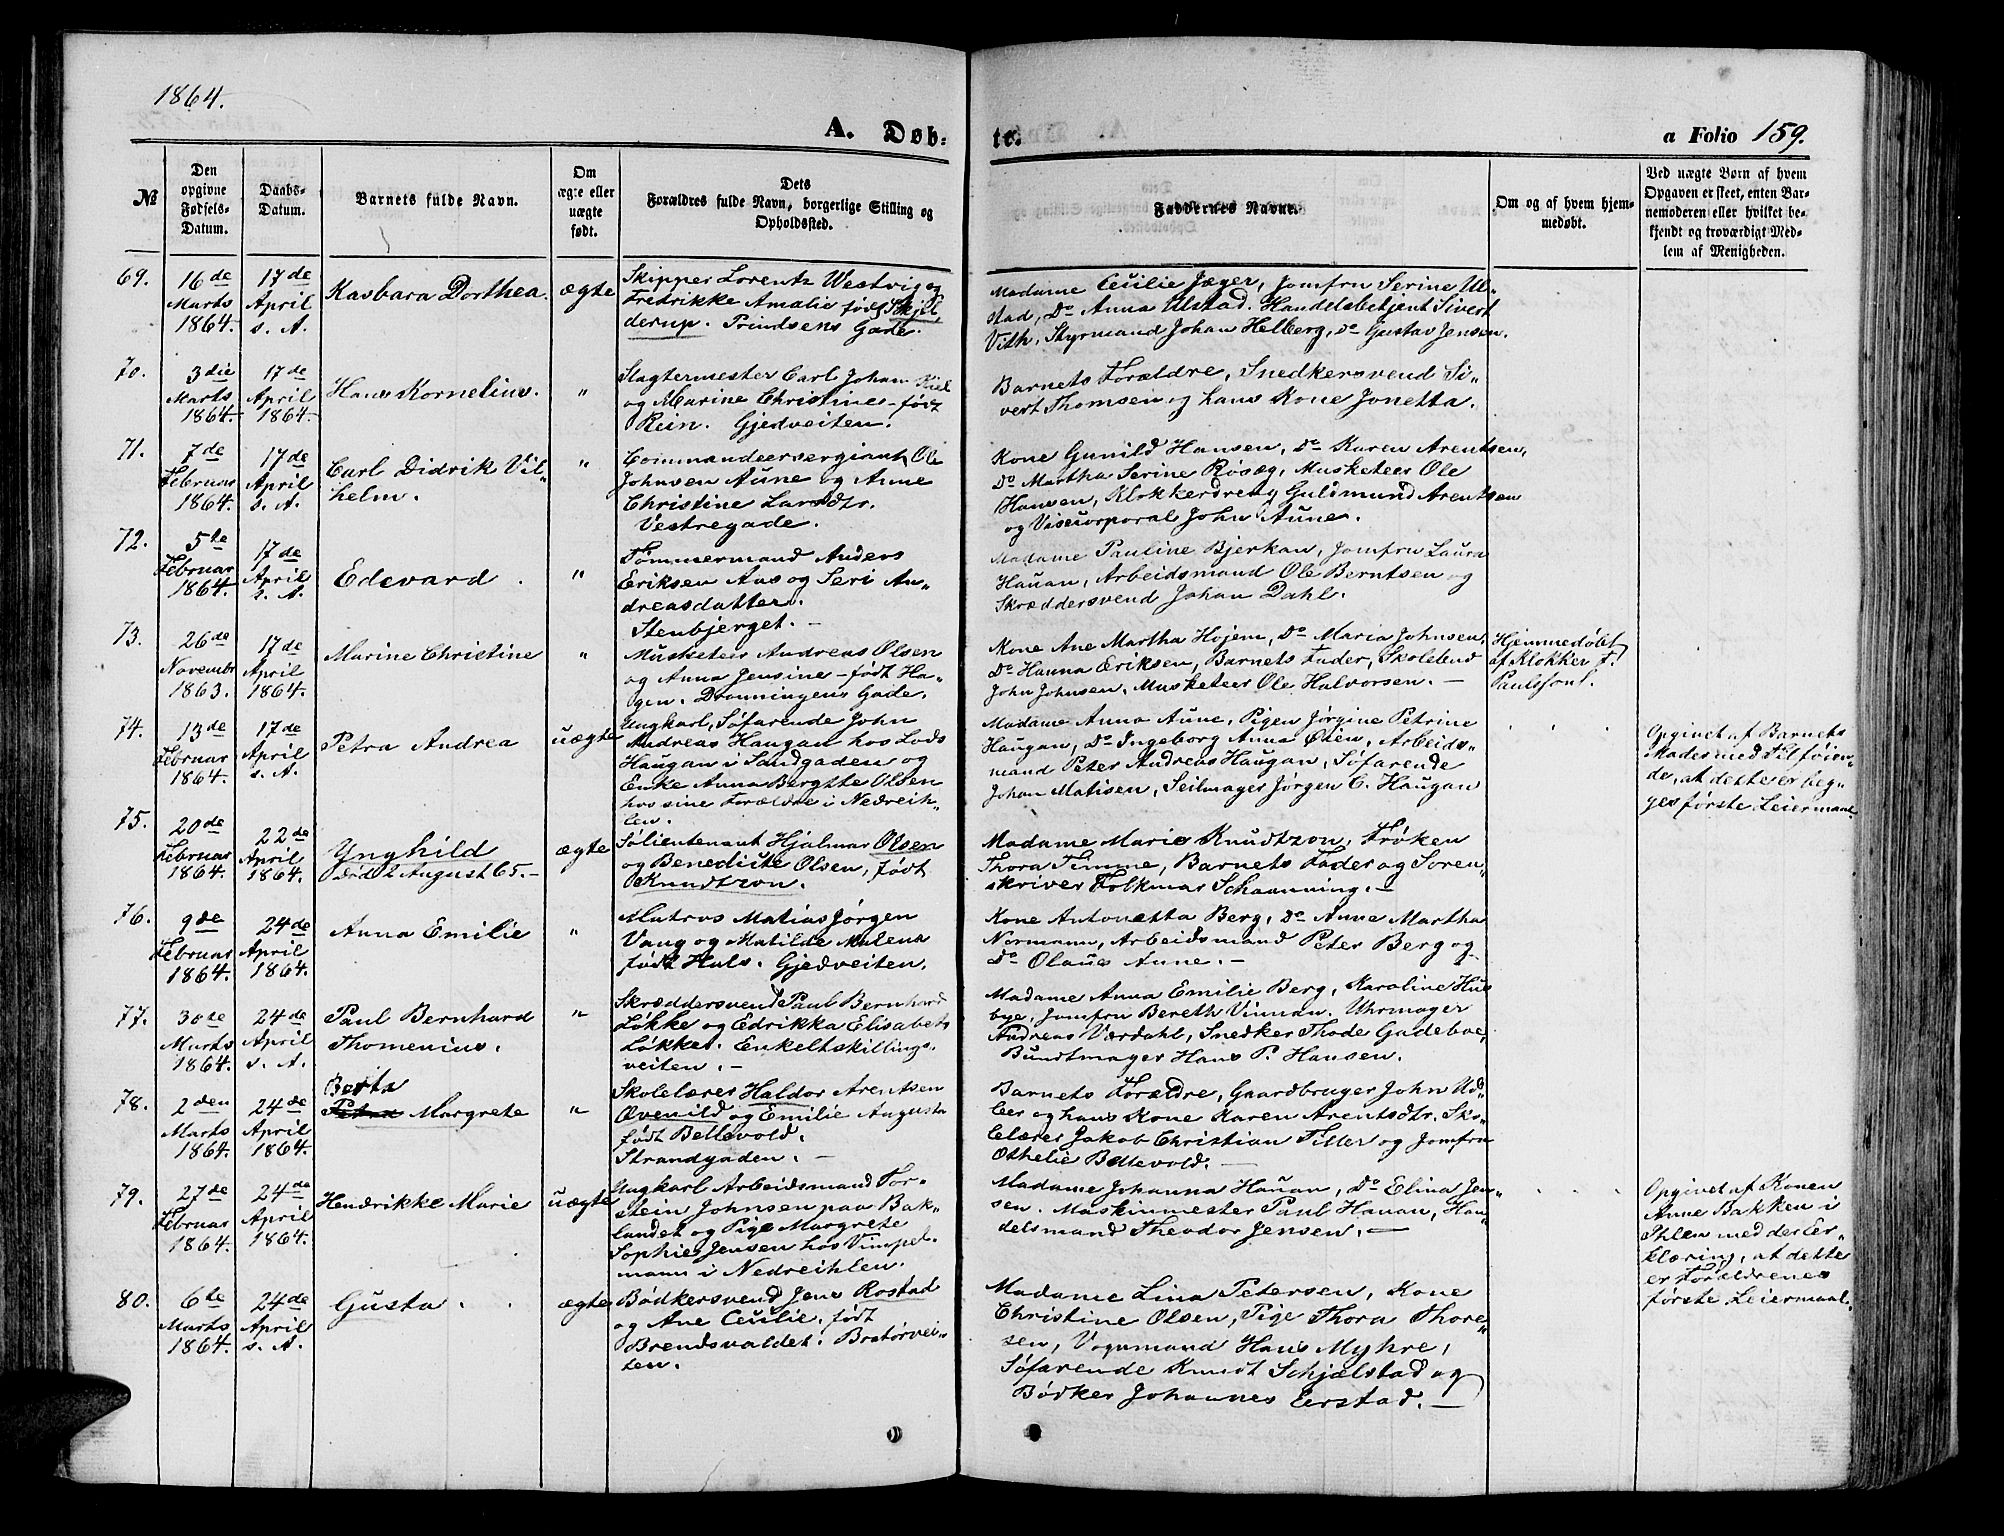 1864.
A. Døb-
te.
a Folio 159.
№
Den
opgivne
Fødsels-
Datum.
Daabs-
Datum.
Barnets fulde Navn.
Om
ægte eller
uægte
født.
Dets
Forældres fulde Navn, borgerlige Stilling og
Opholdssted.
Faddernes Navne.
Om og af hvem hjem-
medøbt.
Ved uægte Børn af hvem
Opgaven er skeet, enten Bar-
nemoderen eller hvilket be-
kjendt og troværdigt Med-
lem af Menigheden.
69.
16de
Marts
1864.
17de
April
s. A.
Kasbara Dorthea.
ægte
Skipper Lorentz Westvig og
Fredrikke Amalie født Skjel
derup. Prindsens Gade.
Madame Cecilie Jæger, Jomfru Serine Ul-
stad, Do Anna Ulstad. Handelsbetjent Sivert
Vith, Styrmand Johan Helberg, do Gustav Jensen.
70.
3die
Marts
1864.
17de
April
1864.
Hans Kornelius.
"
Slagtermester Carl Johan Kiel
og Marine Christine - født
Rein. Gjedveiten.
Barnets Forældre, Snedkersvend Si-
vert Thomsen og hans Kone Jonetta.
71.
7de
Februar
1864.
17de
April
s. A.
Carl Didrik Vil-
helm.
"
Commandeersergiant Ole
Johnsen Aune og Anne
Christine Larsdtr.
Vestregade.
Kone Gunild Hansen, Do Karen Arentsen,
Do Martha Serine Røsæg, Musketeer Ole
Hansen, Klokkerdreng Guldmund Arentsen
og Vicecorporal John Aune.
72.
5te
Februar
1864.
17de
April
s. A.
Edevard.
"
Tømmermand Anders
Eriksen Aas og Seri An-
dreasdatter.
Stenbjerget. -
Madame Pauline Bjerkan, Jomfru Laura
Hauan, Arbeidsmand Ole Berntsen og
Skræddersvend Johan Dahl.
73.
26de
Novembr
1863.
17de
April
1864.
Marine Christine
"
Musketeer Andreas Olsen
og Anna Jensine - født Ha-
gen. Dronningens Gade.
Kone Ane Martha Højem, Do Maria Johnsen,
Do Hanna Eriksen, Barnets Fader, Skolebud
John Johnsen, Musketeer Ole Halvorsen. -
Hjemmedøbt
af Klokker F.
Paulsson.
74.
13de
Februar
1864.
17de
April
s. A.
Petra Andrea
uægte
Ungkarl, Søfarende John
Andreas Haugan hos Lods
Haugan i Sandgaden og
Enke Anna Bergitte Olsen
hos sine Forældre i Nedreih-
len.
Madame Anna Aune, Pigen Jørgine Petrine
Haugan, Do Ingeborg Anna Øien, Arbeids-
mand Peter Andreas Haugan, Søfarende
Johan Matisen, Seilmager Jørgen C. Haugan
Opgivet af Barnets
Moder med Tilføien-
de, at dette er beg-
ges første Leiermaal
75.
20de
Februar
1864.
22de
April
1864.
Ynghild
død 2 August 65. -
ægte
Søløientenant Hjalmar Olsen
og Benedicte Olsen, født
Knudtzon.
Madame Marie Knudtzon, Frøken
Thora Timme, Barnets Fader og Soren-
skriver Folkmar Schaanning. -
76.
9de
Februar
1864.
24de
April
1864.
Anna Emilie
"
Matros Matias Jørgen
Vang og Matilde Malena
født Hals. Gjedveiten.
Kone Antonetta Berg, Do Anne Martha
Normann, Arbeidsmand Peter Berg og
Do Olaus Aune. -
77.
30te
Marts
1864.
24de
April
s. A.
Paul Bernhard
Thomenius.
"
Skræddersvend Paul Bernhard
Løkke og Edrikka Elisabets
Løkket. Enkeltskillings-
veiten. -
Madame Anna Emilie Berg, Karoline Hus
bye, Jomfru Bereth Vinnan. Uhrmager
Andreas Værdahl, Snedker Thode Gadeboe,
Bundtmager Hans P. Hansen.
78.
2den
Marts
1864.
24de
April
1864.
Berta
Margrete
"
Skolelærer Haldor Arentsen
Øvenild og Emilie Augusta
født Bellevold.
Strandgaden. -
Barnets Forældre, Gaardbruger John Ud-
leer og hans Kone Karen Arentsdtr. Sko-
lelærer Jakob Christian Tiller og Jomfru
Othelie Bellevold. -
79.
27de
Februar
1864.
24de
April
1864.
Hendrikke Marie
uægte
Ungkarl Arbeidsmand Tor-
stein Johnsen paa Bak-
landet og Pige Margrete
Sophie Jensen hos Vimpel-
mann i Nedreihlen.
Madame Johanna Hauan, Do Elina Jen-
sen. Maskinmester Paul Hauan, Han-
delsmand Theodor Jensen. -
Opgivet af Konen
Anne Bakken i
Ihlen med der Er-
klæring, at dette
er Forældrenes
første Leiermaal.
80.
6te
Marts
1864.
24de
April
s. A.
Gusta.
ægte
Bødkersvend Jens Rostad
og Ane Cecilie, født
Brendsvaldet. Bratørvei-
ten.
Madame Lina Petersen, Kone
Christine Olsen, Pige Thora Thore-
sen, Vognmand Hans Myhre,
Søfarende Knudt Schjælstad og
Bødker Johannes Eerstad. -